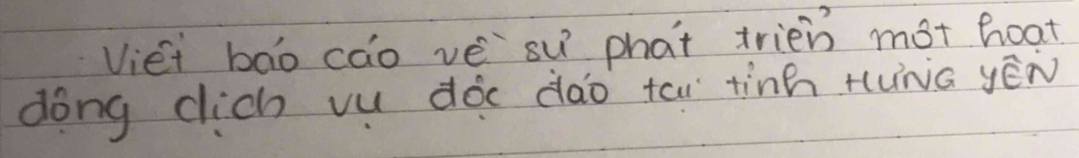 Viết báo cáo về sự phát triển một hoạt
động dịch vụ độc đáo tại tỉnh HƯNG YÊN